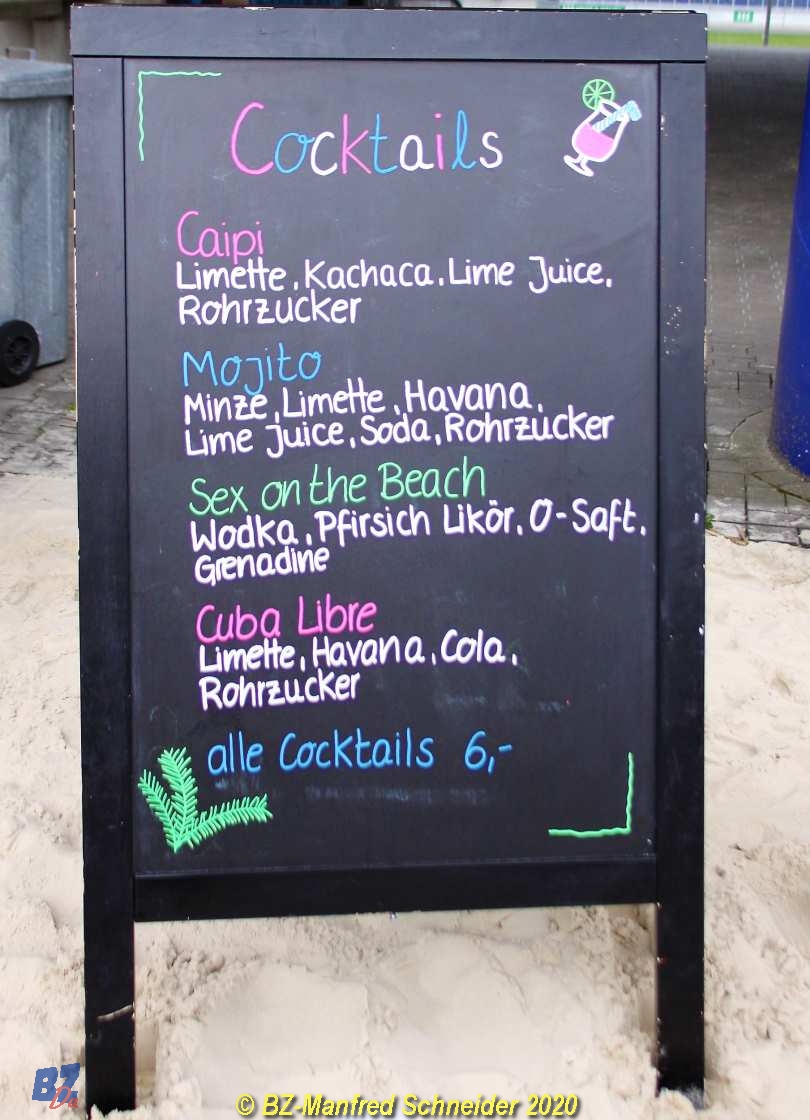 Cocktails
Caipi
Limette, Kachaca, Lime Juice,
Rohrzucker
Mojito
Minze, Limette, Havana,
Lime Juice, Soda, Rohrzucker
Sex on the Beach
Wodka, Pfirsich Likör, O-Saft,
Grenadine
Cuba Libre
Limette, Havana, Cola,
Rohrzucker
alle Cocktails 6,-
BZ
© BZ-Manfred Schneider 2020